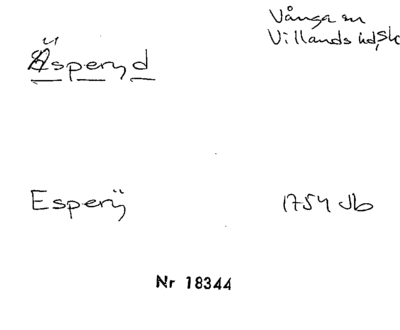 Vånga sn
Villands hd, Sk
Äsperyd
Esperÿ
1754 Jb
Nr 18344